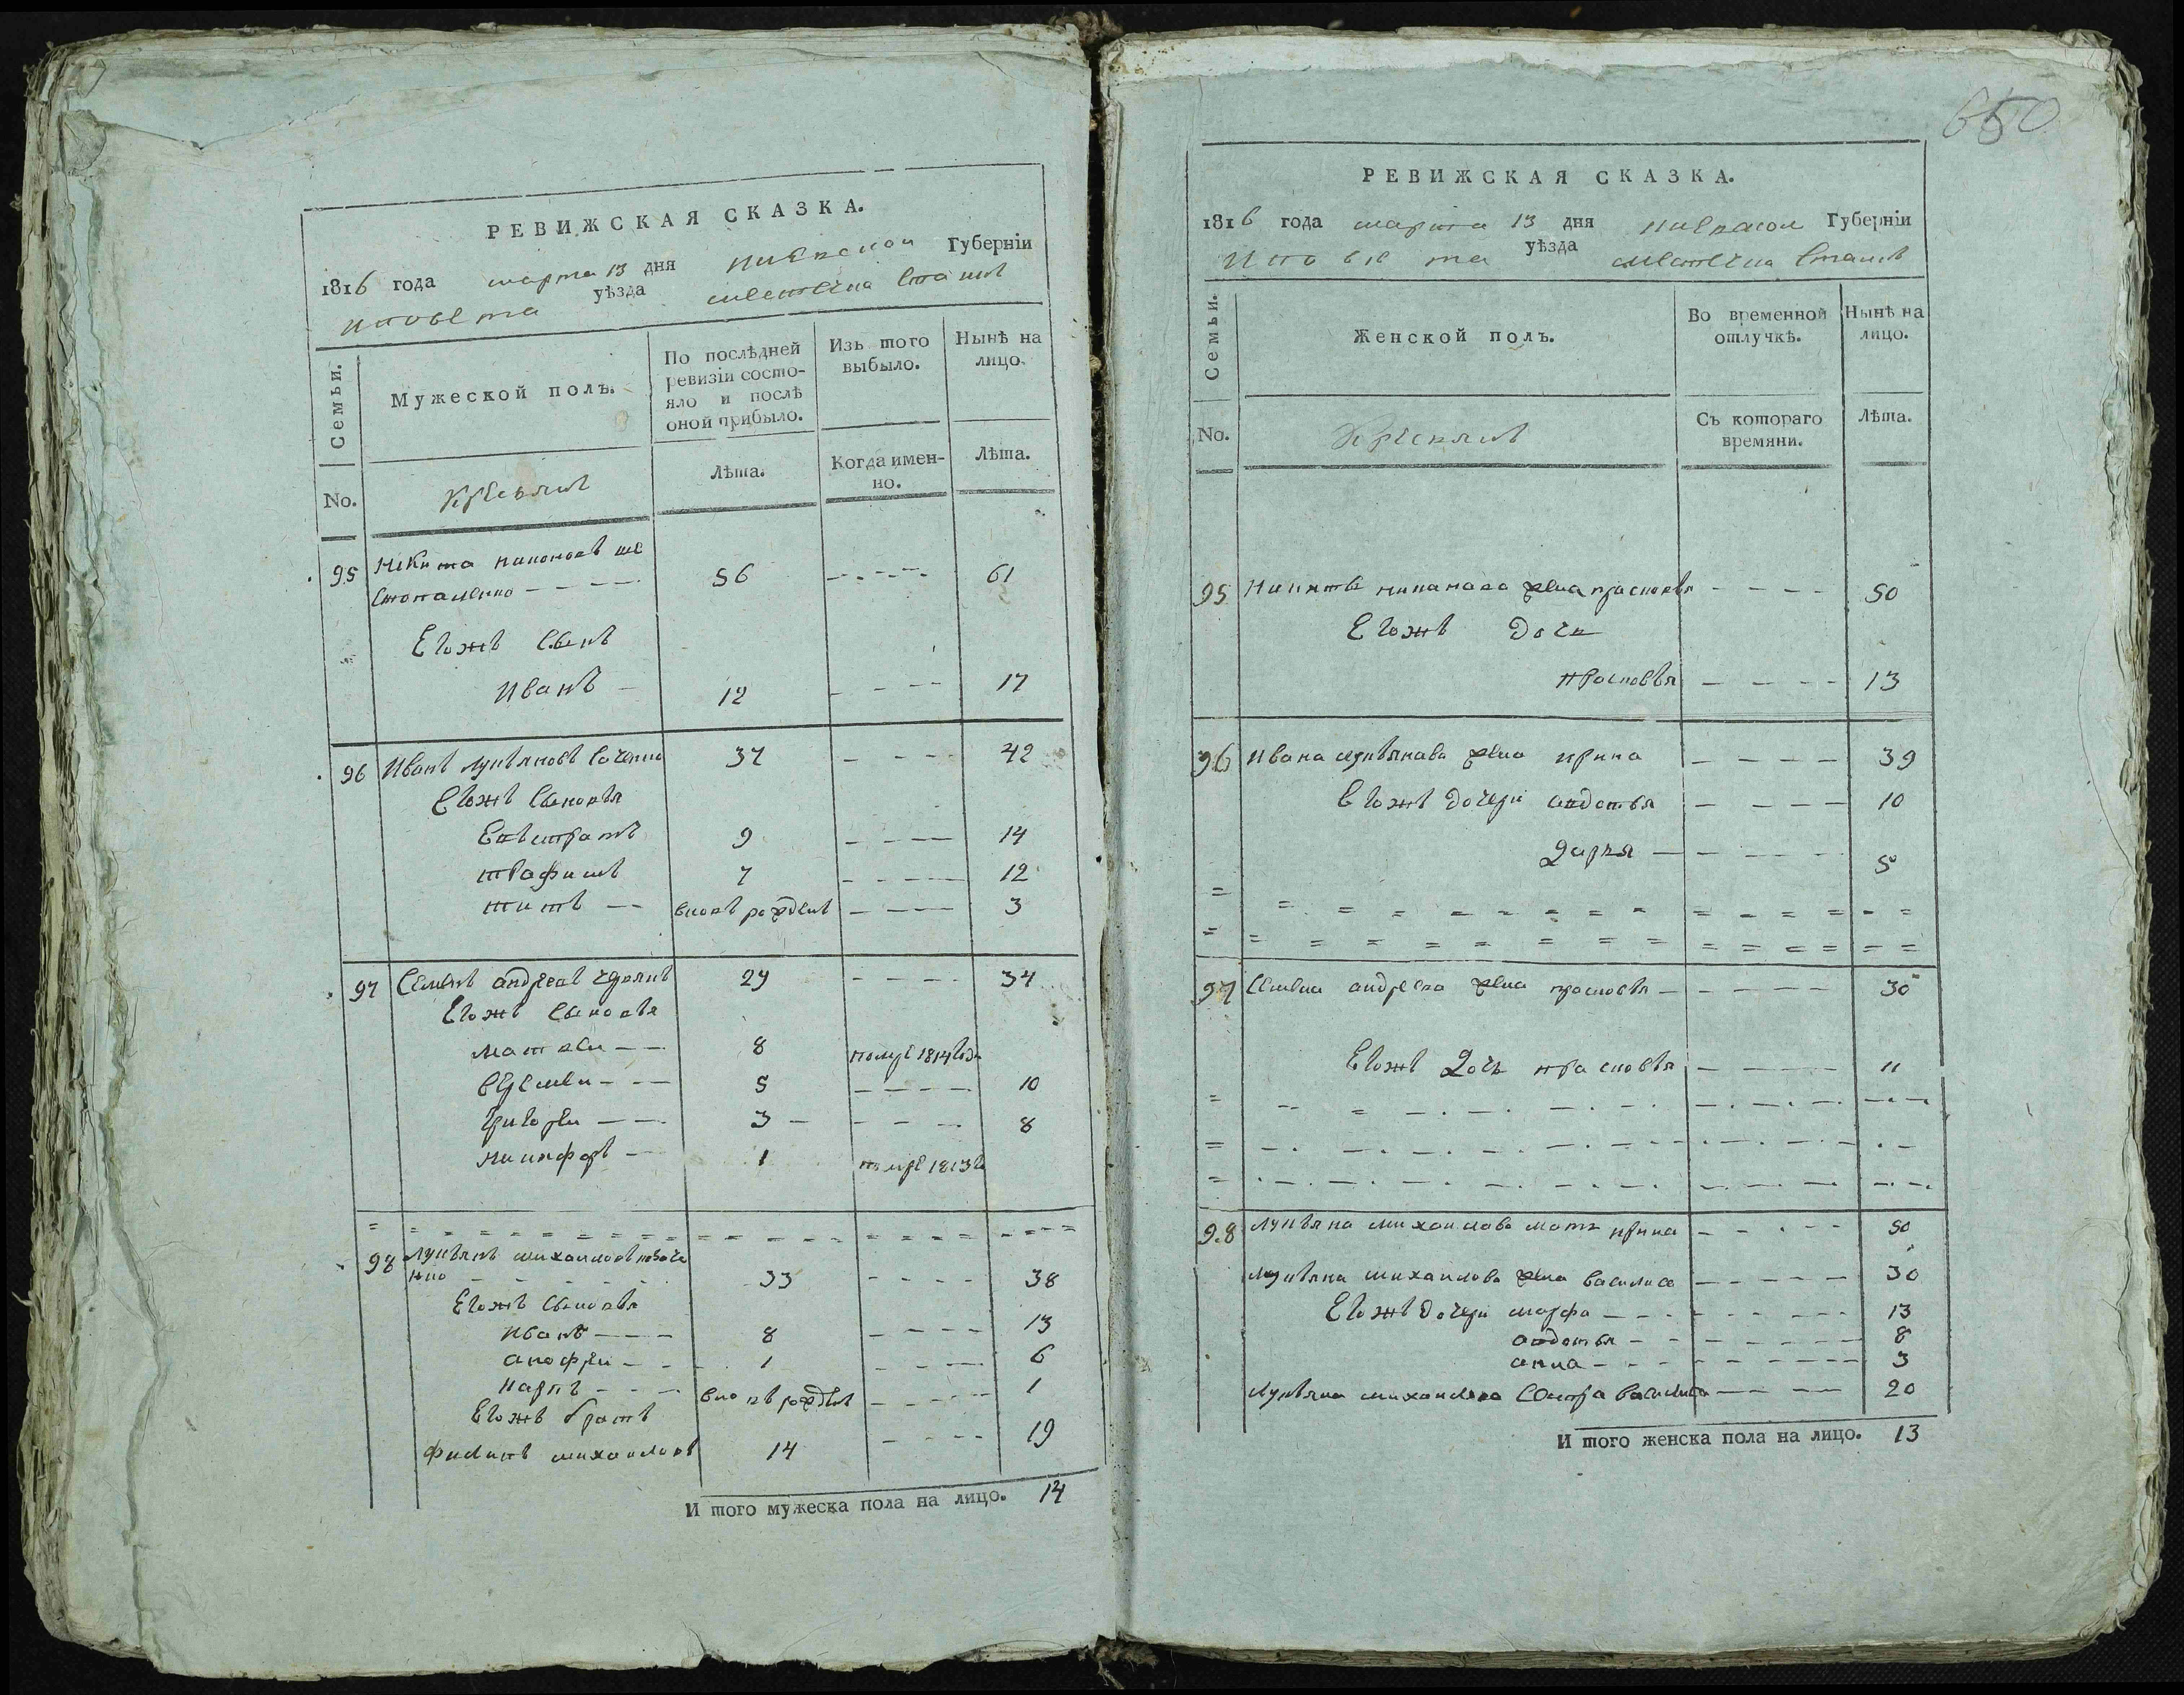 РЕВИЖСКАЯ СКАЗКА.
1816 года марта 13 дня Киевской Губерніи
уѣзда местечка Ставищ
Семьи.
No.
Мужеской полъ.
По послѣдней ревизіи состо-
яло и послѣ
оной прибыло.
Изъ того
выбыло.
Нынѣ на
лицо.
Лѣта.
Когда имен-
но.
Лѣта.
95 Никита никоновъ ше
56 - - - - 61
Егожъ Сынъ
Иванъ - 12 - - - - 17
96 Иванъ лукъяновъ 37 - - - - 42
Егожъ Сыновья
Евъстратъ 9 - - - - 14
трафимъ 7 - - - - 12
титъ - - вновъ рожденъ - - - - 3
97 Семенъ андреевъ 29 - - - - 34
Егожъ Сыновья
матвеи - - 8 помре 1814 года
Еремеи - - - 5 - - - - 10
Григореи - - - 3 - - - - 8
никифоръ - 1 помре 1813 го
98 Лукъянъ михаиловъ
33 - - - - 38
Егожъ Сыновья
Иванъ - - - 8 - - - - 13
анофреи - - - 1 - - - - 6
карпъ - - - вновъ рожденъ - - - - 1
Егожъ братъ
Филипъ михаиловъ 14 - - - - 19
И того мужеска пола на лицо. 14
650
РЕВИЖСКАЯ СКАЗКА.
1816 года марта 13 дня Киевской Губерніи
уѣзда местечка Ставищ
Семьи.
No.
Женской полъ.
Во временной
отлучкѣ.
Нынѣ на
лицо.
Съ котораго
времяни.
Лѣта.
95 Никиты никанава жена прасковья - - - - 50
Егожъ дочь
прасковья - - - - 13
96 Ивана лукъянава жена ирина - - - - 39
Егожъ дочери авдотья - - - - 10
Дарья - - - - - 5
97 Семена андреева жена прасковья - - - - - 30
Егожъ Дочь прасковья - - - - 11
98 Лукъяна михаилова мать ирина - - - - 50
Лукъяна михаилова жена василиса - - - - - 30
Егожъ дочери марфа - - - - - - - 13
авдотья - - - - - - - 8
анна - - - - - - - - 3
Лукъяна михаилова Сестра василиса - - - - 20
И того женска пола на лицо. 13